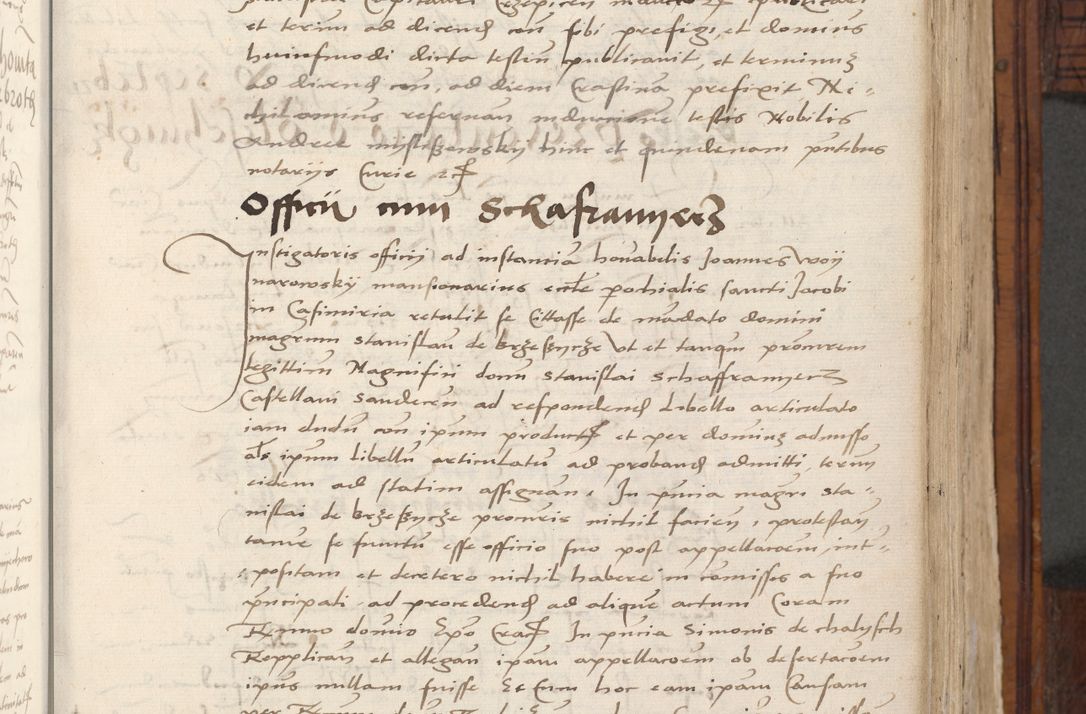 et termin ad dicend con sibi prefigi, et dominus
huiusmodi dicta testiu publicauit, et terminuz
ad dicend con, ad diem Crastina prefixit Ni-
chilominus referuan induccione testis Nobilis
Andree misliszowsky hinc et quindenam pntibus
notariis Curie
Officii cum Schafranyecz
Instigatoris officij ad instantia honorabilis Joannes Woy
narowsky mansionarius eccle parochialis sancti Jacobi
in Casimiria retulit se Cittasse de madato domini
magrum Stanislau de brzeszycze Vt et tanqm procurem
legittimu Magnifici domi Stanislai Schaffranyecz
Castellani Sandecen ad respondend Libello articulato
iam dudu con ipum product et per dominu admisso
als ipum libellu articulatu ad proband admitti, termin
eidem ad statim assignan. In pncia magri Sta-
nislai de brzeszycze procuris nichil facien, protestan
tame se functu esse officio suo post appellacoem int-
positam et decetero nichil habere in comissis a suo
pncipali ad procedend ad alique actum Coram
Rmmo domio Epo Crac In pncia Simonis de chalysch
Repplican et allegan ipam appellacoem ob desertacoem
ipius nullam fuisse Et sum hoc eam ipam Causam